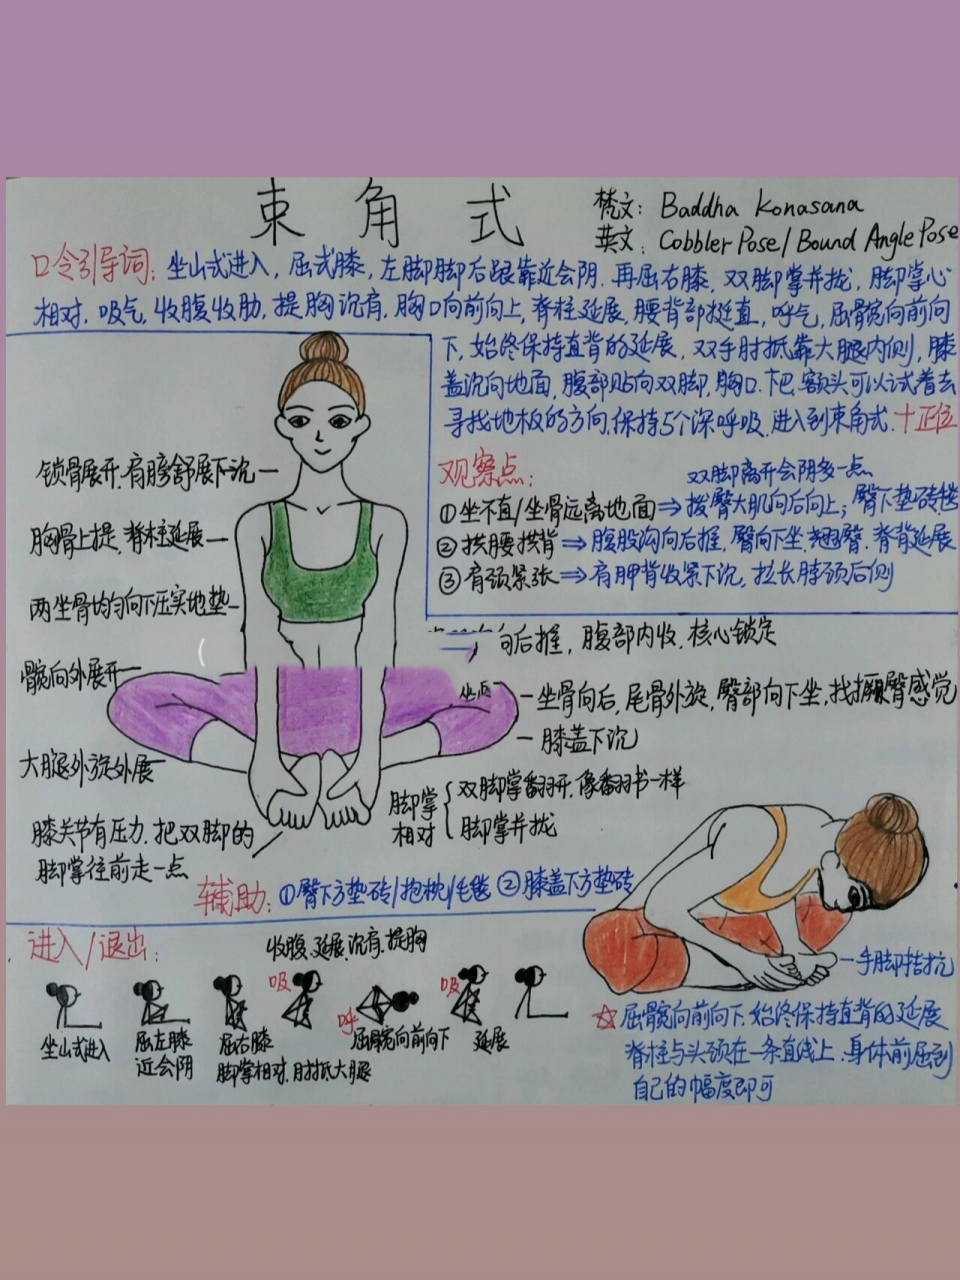 束角式
梵文：Baddha Konasana
英文：Cobbler Pose/Bound Angle Pose
口令引导词：坐山式进入，屈式膝，左脚脚后跟靠近会阴.再屈右膝，双脚掌并拢，脚掌心
相对，吸气，收腹收肋，提胸沉肩，胸口向前向上，脊柱延展，腰背部挺直，呼气，屈髋向前向
下，始终保持直背的延展，双手肘抵靠大腿内侧，膝
盖沉向地面，腹部贴向双脚，胸口.下巴.额头可以试着去
寻找地板的方向，保持5个深呼吸.进入到束角式.十正位
观察点：
双脚离开会阴多一点
①坐不直/坐骨远离地面⇒拨臀大肌向后向上；臀下垫砖毯
②拱腰拱背⇒腹股沟向后推，臀向下坐.翘臀.脊背延展
③肩颈紧张⇒肩胛背收紧下沉，拉长脖颈后侧
锁骨展开.肩膀舒展下沉
胸骨上提.脊柱延展
两坐骨均匀向下压实地垫
髋向外展开
大腿外旋外展
膝关节有压力.把双脚的
脚掌往前走一点
向后推，腹部内收.核心锁定
坐骨向后，尾骨外旋，臀部向下坐，找撅臀感觉
膝盖下沉
脚掌相对
双脚掌翻开.像翻书一样
脚掌并拢
辅助：①臀下方垫砖/抱枕/毛毯 ②膝盖下方垫砖
进入/退出：
收腹.延展.沉肩.提胸
吸
呼
吸
坐山式进入
屈左膝
近会阴
屈右膝
脚掌相对.肘抵大腿
屈髋向前向下
延展
手脚拮抗
☆屈髋向前向下.始终保持直背的延展
脊柱与头颈在一条直线上.身体前屈到
自己的幅度即可